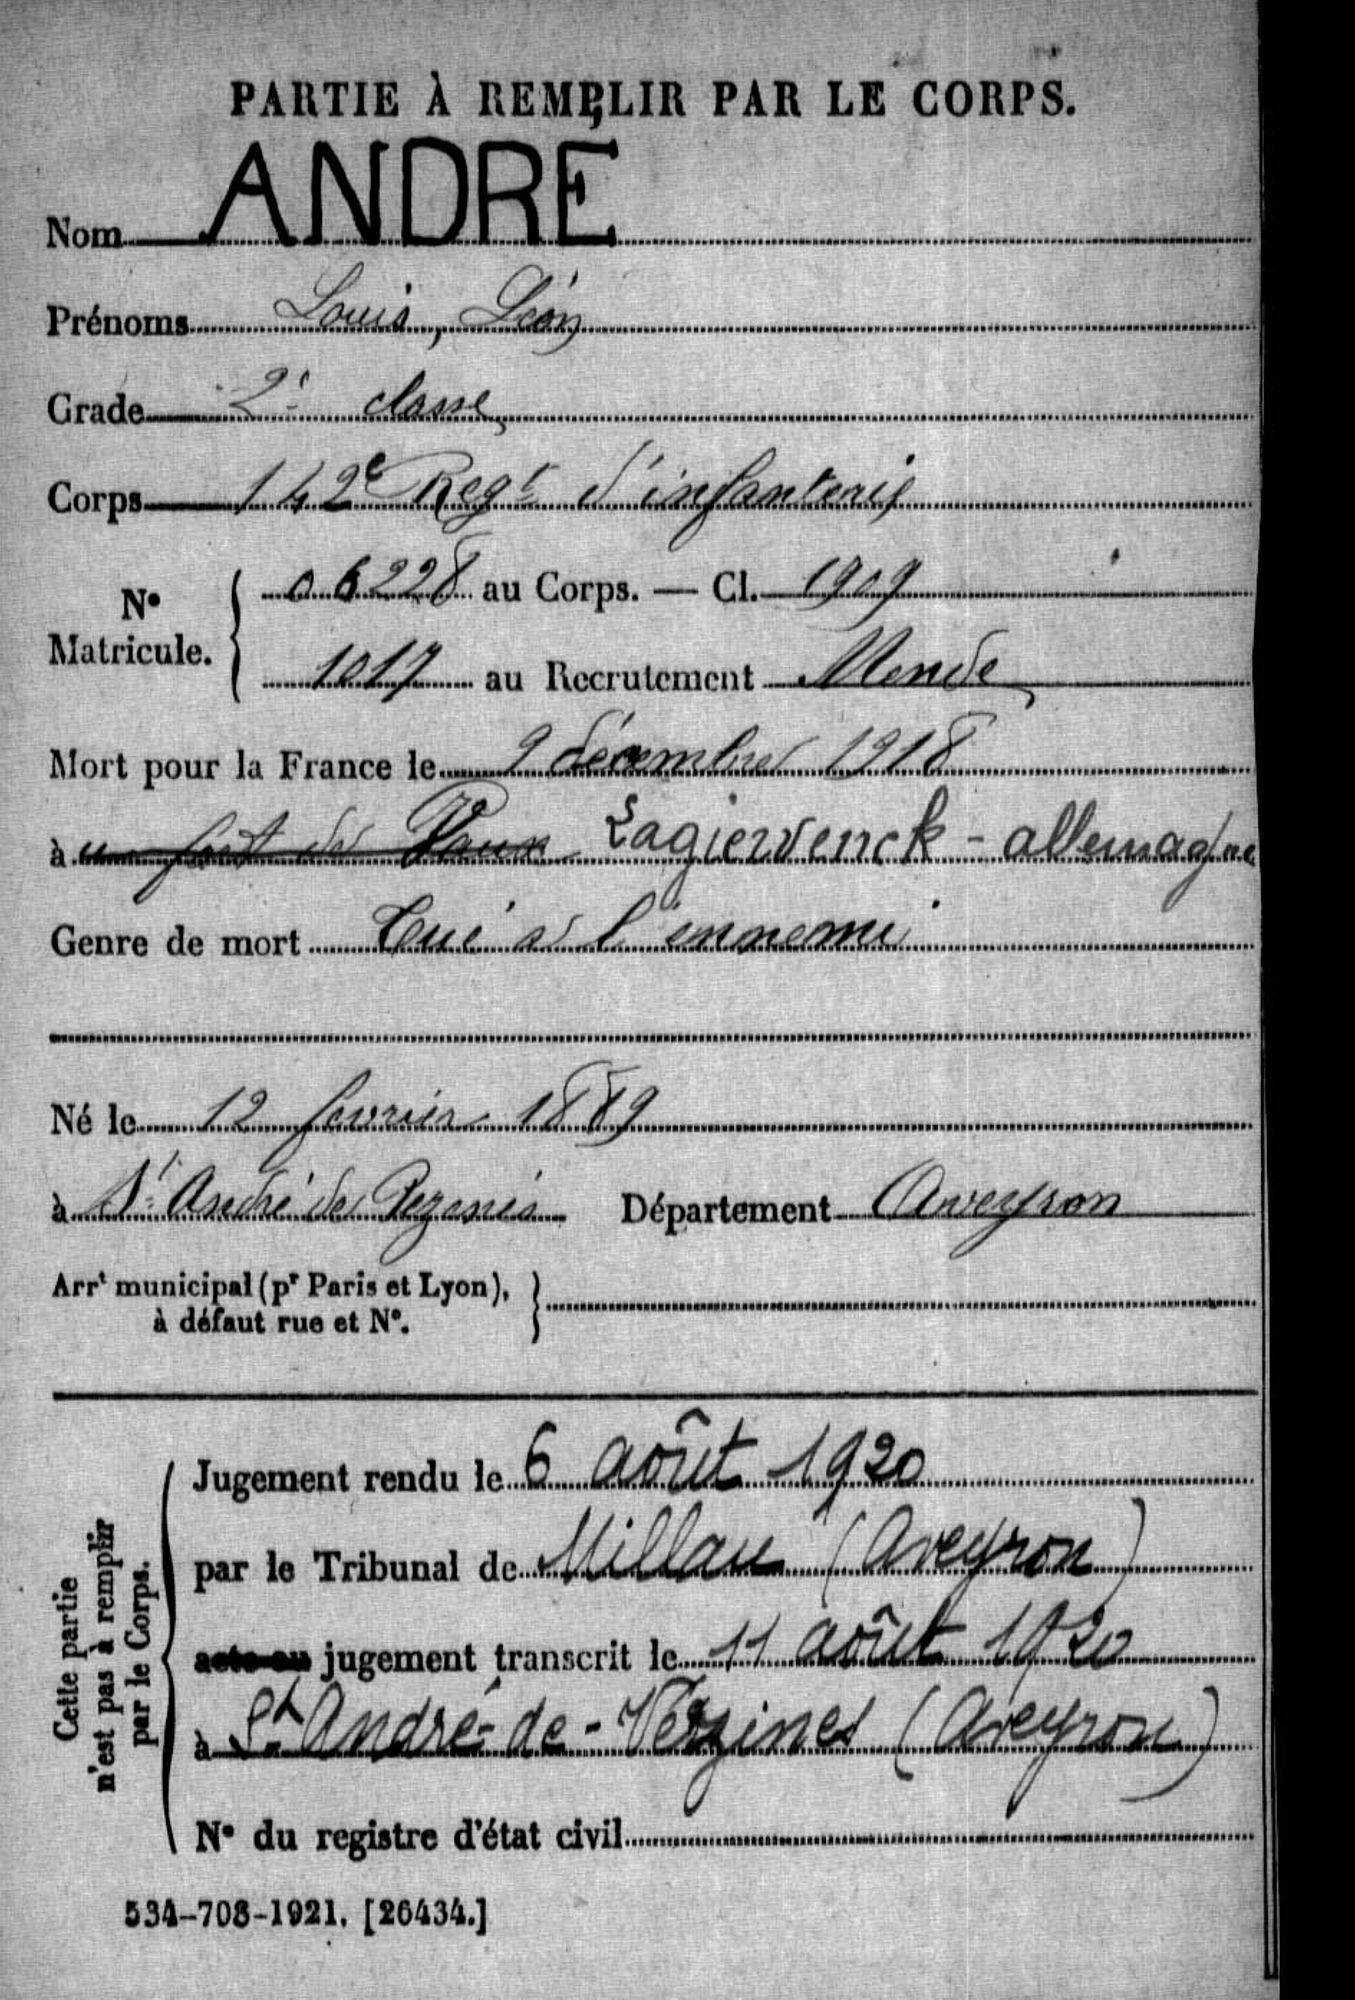 PARTIE À REMPLIR PAR LE CORPS.
Nom ANDRE
Prénoms Louis, Léon
Grade 2e classe
Corps 142e Regt d'infanterie
No Matricule. 06228 au Corps. — Cl. 1909
1017 au Recrutement Mende
Mort pour la France le 9 décembre 1918
à au fort de Vaux Lagiervenck - allemagne
Genre de mort Tué à l'ennemi
Né le 12 février 1889
à St André de Vezenés Département Aveyron
Arrt municipal (pr Paris et Lyon),
à défaut rue et No.
Cette partie
n'est pas à remplir
par le Corps.
Jugement rendu le 6 août 1920
par le Tribunal de Millau (Aveyron)
acte ou jugement transcrit le 11 août 1920
à St André-de-Vézines (Aveyron)
No du registre d'état civil
534-708-1921. [26434.]